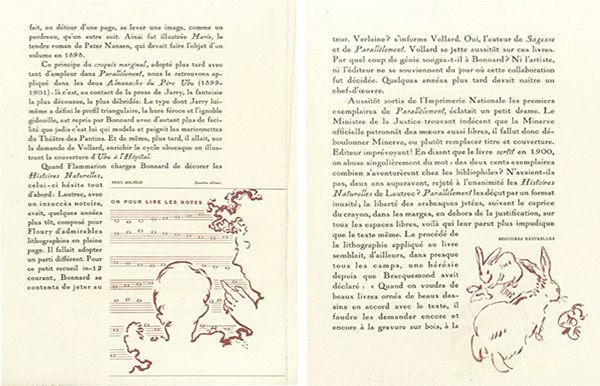 fait, au détour d'une page, se lever une image, comme un
perdreau, qu'un autre suit. Ainsi fut illustrée Marie, le
tendre roman de Peter Nansen, qui devait faire l'objet d'un
volume en 1898.
Ce principe du croquis marginal, adopté plus tard avec
tant d'ampleur dans Parallèlement, nous le retrouvons ap-
pliqué dans les deux Almanachs du Père Ubu (1899-
1901) : là c'est, au contact de la prose de Jarry, la fantaisie
la plus décousue, la plus débridée. Le type dont Jarry lui-
même a défini le profil triangulaire, la hure féroce et l'ignoble
gidouille, est repris par Bonnard avec d'autant plus de faci-
lité que jadis c'est lui qui modela et peignit les marionnettes
du Théâtre des Pantins. Et de même, plus tard, il allait, sur
la demande de Vollard, enrichir le cycle ubuesque en illus-
trant la couverture d'Ubu à l'Hôpital.
Quand Flammarion chargea Bonnard de décorer les
Histoires Naturelles,
celui-ci hésita tout
d'abord : Lautrec, avec
un insuccès notoire,
avait, quelques années
plus tôt, composé pour
Floury d'admirables
lithographies en pleine
page. Il fallait adopter
un parti différent. Pour
ce petit recueil in-12
courant, Bonnard se
contenta de jeter au
PETIT SOLFÈGE
ON POUR LIRE LES NOTES
teur. Verlaine? s'informe Vollard. Oui, l'auteur de Sagesse
et de Parallèlement. Vollard se jette aussitôt sur ces livres.
Par quel coup de génie songea-t-il à Bonnard? Ni l'artiste,
ni l'éditeur ne se souviennent du jour où cette collaboration
fut décidée. Quelques années plus tard devait naître un
chef-d'œuvre.
Aussitôt sortis de l'Imprimerie Nationale les premiers
exemplaires de Parallèlement, éclatait un petit drame. Le
Ministre de la Justice trouvant indécent que la Minerve
officielle patronnât des mœurs aussi libres, il fallut donc dé-
boulonner Minerve, ou plutôt remplacer titre et couverture.
Editeur imprévoyant! En disant que le livre sortit en 1900,
on abuse singulièrement du mot : des deux cents exemplaires
combien s'aventurèrent chez les bibliophiles? N'avaient-ils
pas, deux ans auparavant, rejeté à l'unanimité les Histoires
Naturelles de Lautrec? Parallèlement les déçut par un format
inusité; la liberté des arabesques jetées, suivant le caprice
du crayon, dans les marges, en dehors de la justification, sur
tous les espaces libres, voilà qui leur parut plus impudique
que le texte même. Le procédé de
la lithographie appliqué au livre
semblait, d'ailleurs, dans presque
tous les camps, une hérésie
depuis que Bracquemond avait
déclaré : « Quand on voudra de
beaux livres ornés de beaux des-
sins en accord avec le texte, il
faudra les demander encore et
encore à la gravure sur bois, à la
HISTOIRES NATURELLES